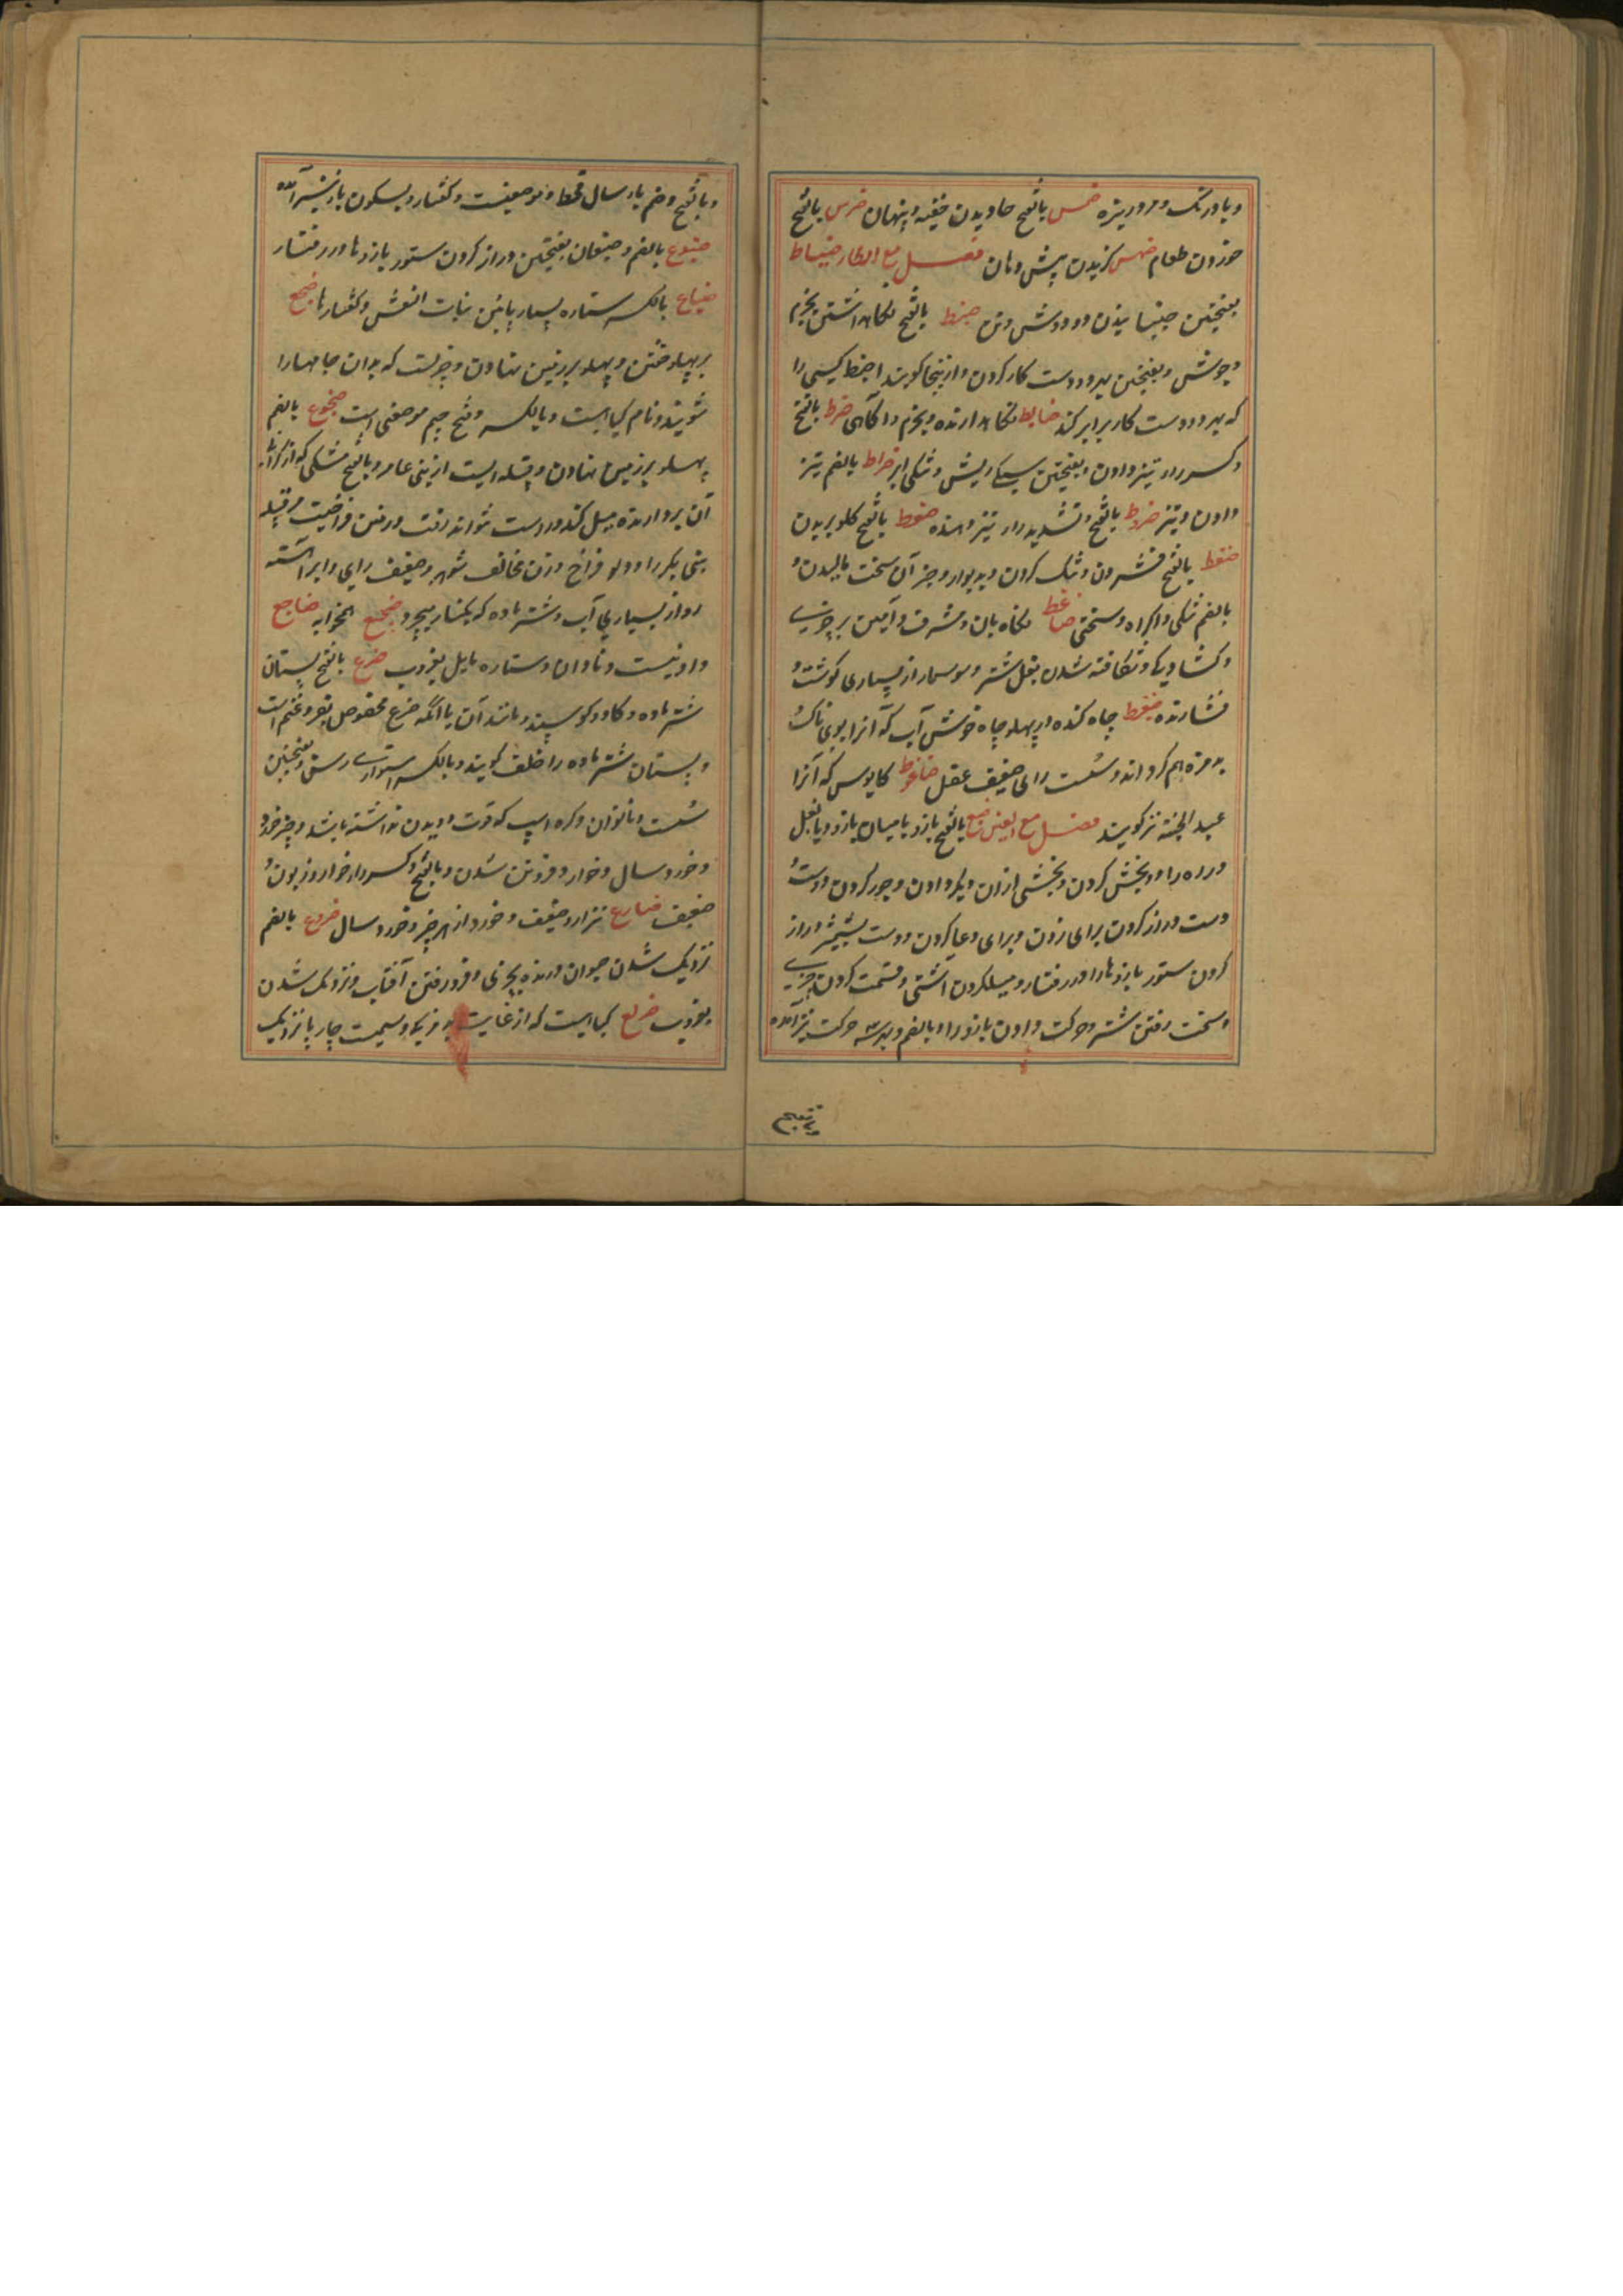 و بادرنگ و مرد ریزه ضمس بالفتح خاویدن خفیه و پنهان ضرس بالفتح
خوردن طعام ضهس گزیدن پیش دهان فصل مع الطاء ضباط
بفتحتین جنبانیدن دو دوش و تن ضبط بالفتح نگاهداشتن بحزم
و چوشش و بفتحتین بهر دو دست کار کردن و ازینجا گویند اضبط کسی را
که بهر دو دست کار برابر کند ضابط نگاهدارنده و بحزم و آگاهی ضرط بالفتح
و کسر راء تیز دادن و بفتحتین سبکی ریش و تنکی ابرو ضراط بالضم تیز
دادن و تیز ضروط بالفتح و تشدید راء تیز دهنده ضعط بالفتح گلو بریدن
ضغط بالفتح فشردن و تنگ کردن و بدیوار و جز آن سخت مالیدن و
بالضم تنگی و اکراه و سختی ضاغط نگاه بان و مشرف و امین بر چیزی
و کشادگی و شکافته شدن بغل شتر و سوسمار از بسیاری گوشت و
فشارنده ضغیط چاه کنده در پهلو چاه خوش آب که آنرا بوی ناک و
بدمزه هم گرداند و سست رای ضعیف عقل ضاغوط کابوس که آنرا
عبد الجنه نیز گویند فصل مع العین ضبع بالفتح بازو یا میان بازو و یا بغل
و رده را دو بخش کردن و بخشی ازان دیگر دادن و جور کردن و دست و
دست دراز کردن برای زدن و برای دعا کردن و دست بشمشیر دراز
کردن ستور بازوها را در رفتار و میل کردن آشتی و قسمت کردن چیزی
و سخت رفتن شتر و حرکت دادن بازو را و بالضم و بهر سه حرکت نیز آمده
و بالفتح
و بالفتح و ضم باء سال قحط و موضعیست و کفتار و بسکون باء نیز آمده
ضبوع بالضم و ضبعان بفتحتین دراز کردن ستور بازوها در رفتار
ضباع بالکسر ستاره بسیار پائین بنات النعش و کفتارها ضجع
بر پهلو خفتن و پهلو بر زمین نهادن و چیزیست که بدان جامها را
شویند و نام گیاهیست و بالکسر و فتح جیم موضعی است ضجوع بالضم
پهلو بر زمین نهادن و قبیله ایست از بنی عامر و بالفتح مشکی که از گرانی
آن بردارنده میل کند و راست نتواند رفت و زمین فراخیست مر قبیله
بنی بکر را و دلو فراخ و زن مخالف شوهر و ضعیف رای و ابر آهسته
رو از بسیاری آب و شتر ماده که بکنار بچرد ضجیع همخوابه ضاجع
وادئیست و نادان و ستاره مایل بغروب ضرع بالفتح پستان
شتر ماده و گاو و گوسپند و مانند آن یا آنکه ضرع مخصوص بقر و غنم است
و پستان شتر ماده را خلف گویند و بالکسر استواری رسن و بفتحتین
سست و ناتوان و کره اسپ که قوت دویدن نداشته باشد و چیز خورد
و خورد سال و خوار و فروتن شدن و بالفتح و کسر راء خوار و زبون و
ضعیف ضارع نزار و ضعیف و خورد از هر چیز و خورد سال ضروع بالضم
نزدیک شدن حیوان درنده بچیزی و فرو رفتن آفتاب و نزدیک شدن
بغروب ضریع گیاهیست که از غایت بد مزگی و سمیت چارپا نزدیک